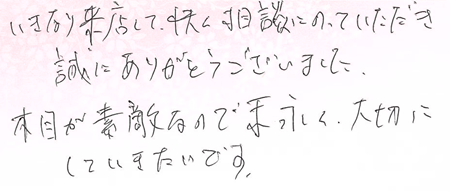 いきなり来店して、快く相談にのっていただき
誠にありがとうございました。
木目が素敵なので末永く、大切に
していきたいです。